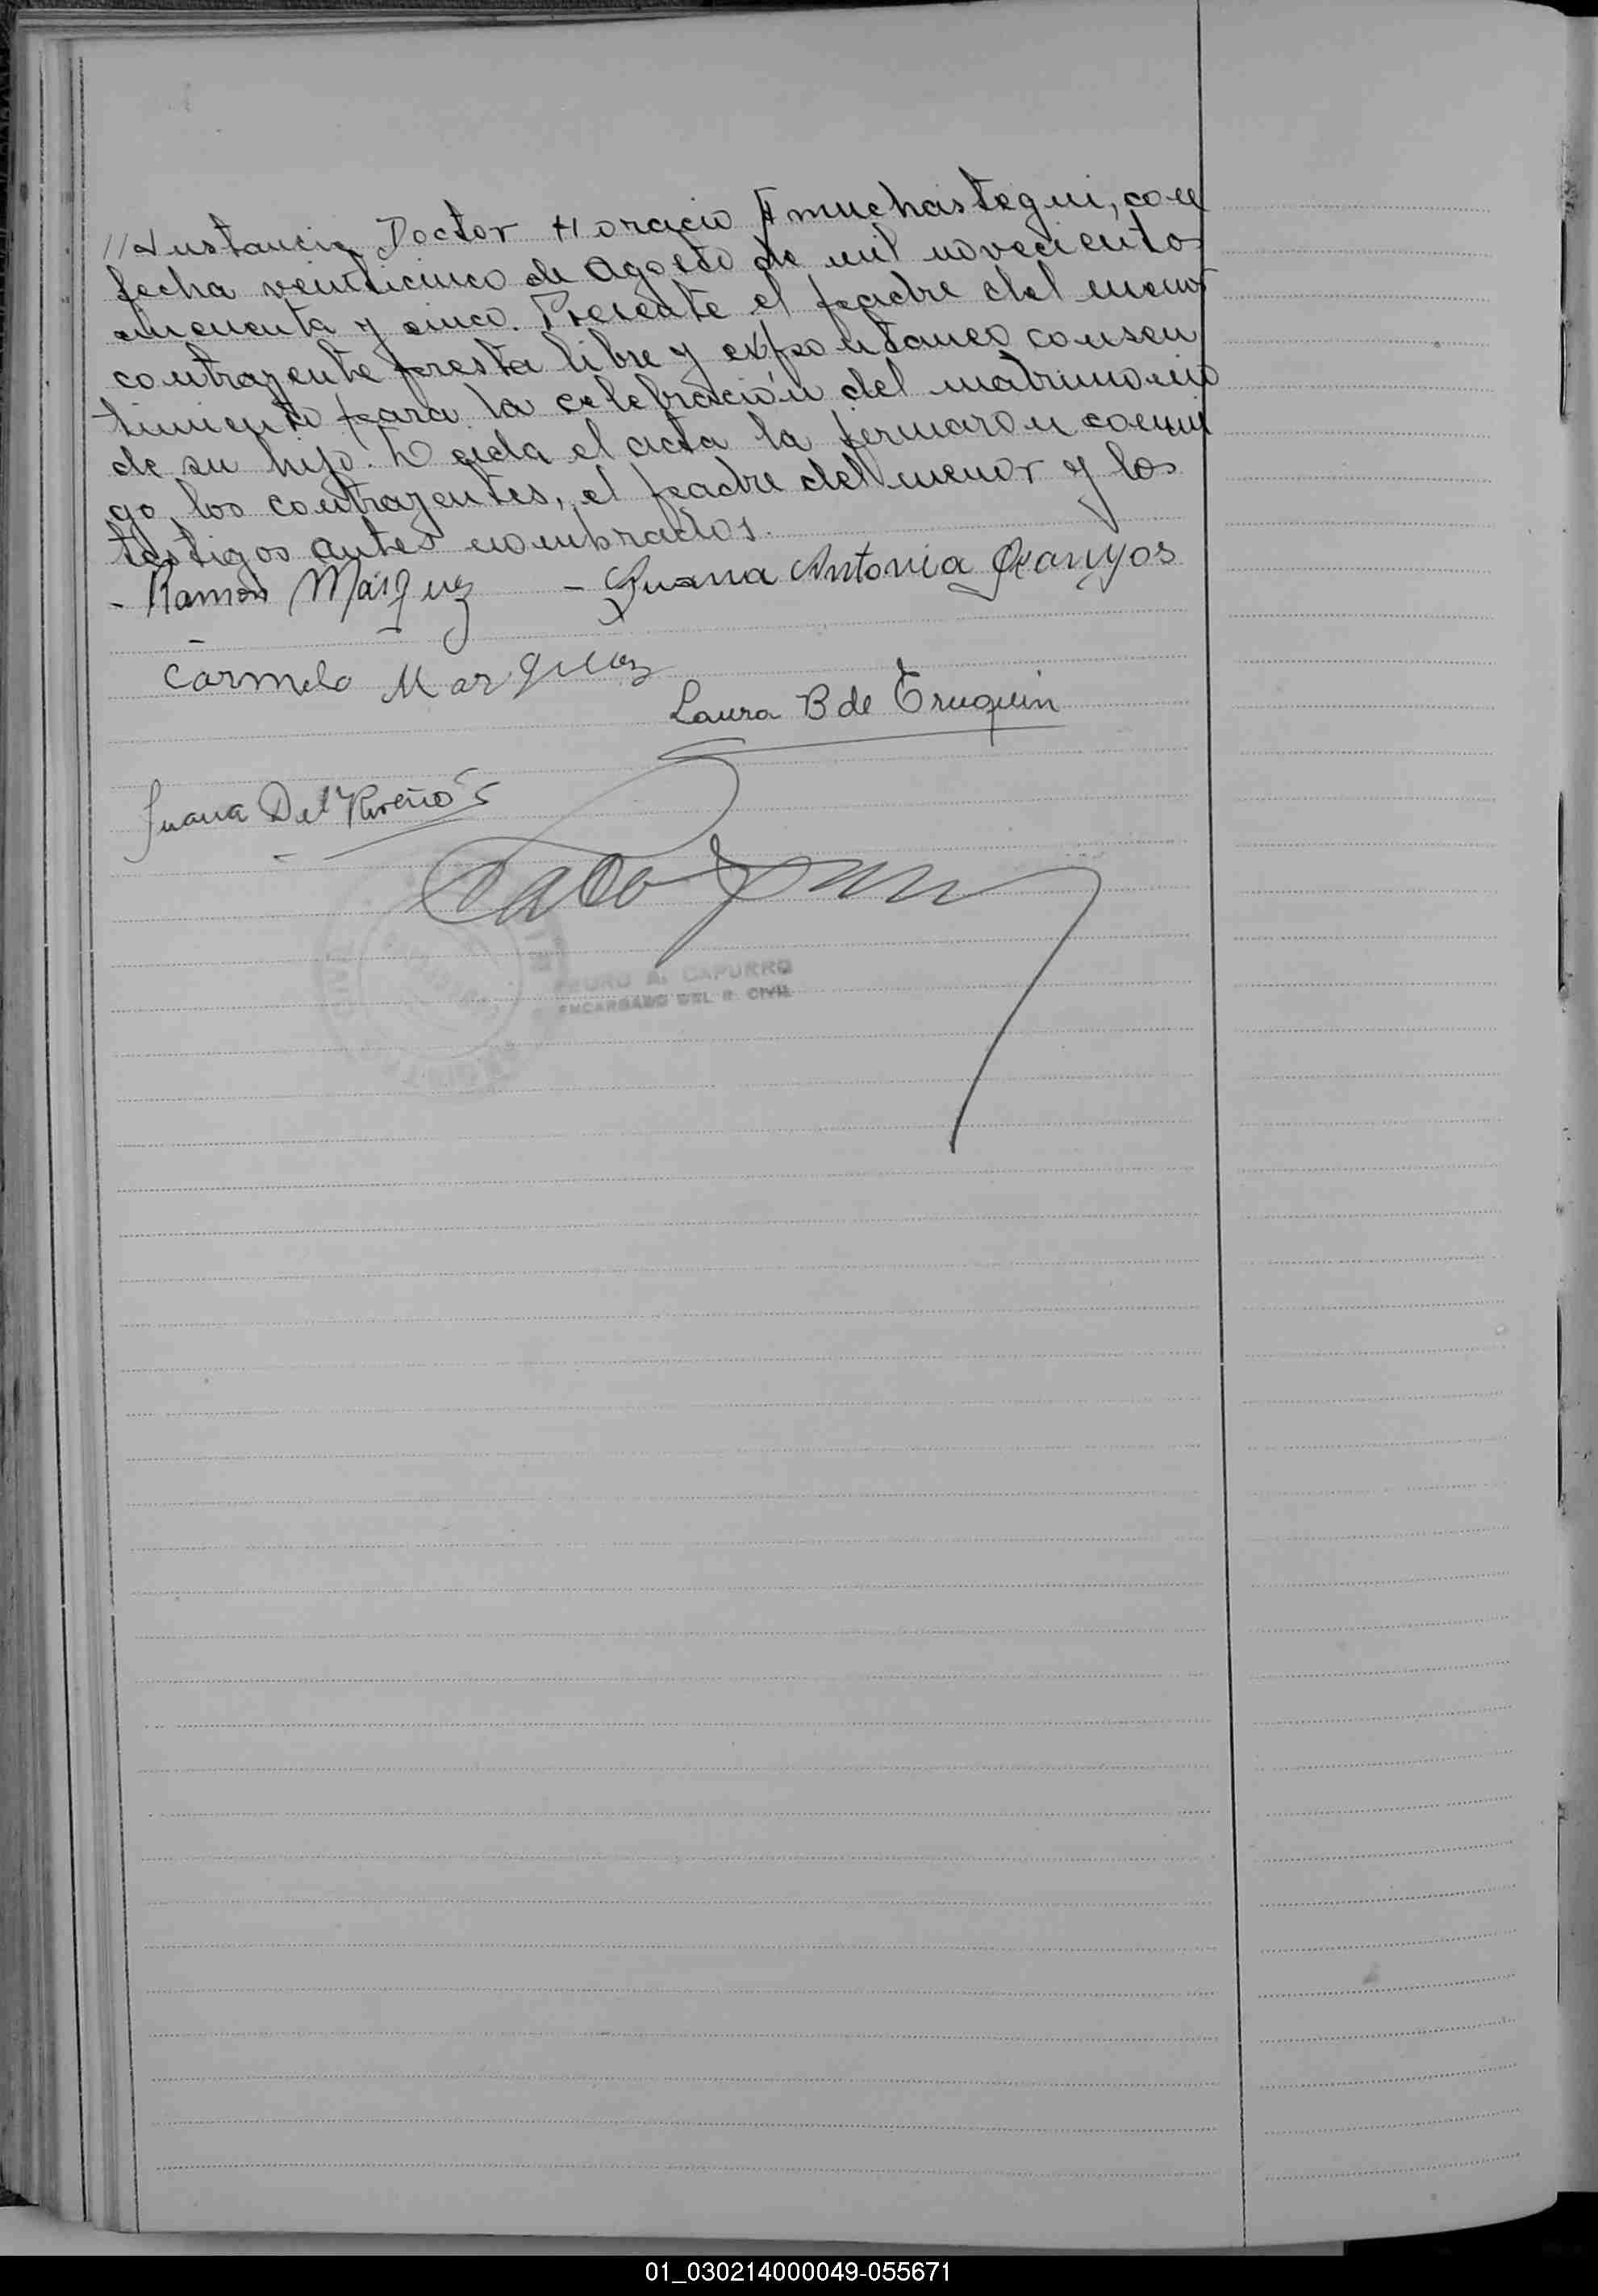 //Instancia Doctor Horacio Amuchastegui, con
fecha veinticinco de Agosto de mil novecientos
cincuenta y cinco. Presente el padre del menor
contrayente presta libre y expontaneo consen
timiento para la celebración del matrimonio
de su hijo. Leida el acta la firmaron conmi
go, los contrayentes, el padre del menor y los
testigos antes nombrados.
- Ramón Márquez - Juana Antonia
Carmelo Marquez
Laura B de Truquin
Juana Del
PEDRO A. CAPURRO
ENCARGADO DEL R. CIVIL
01_030214000049-055671